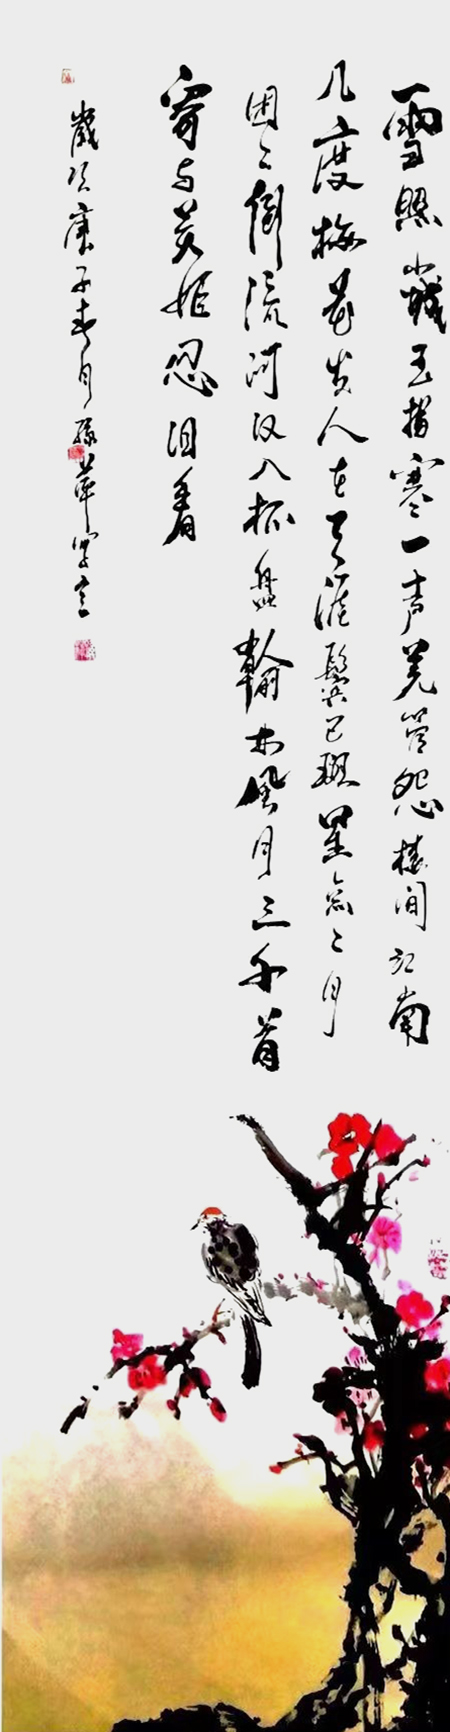 雪照山城玉指寒一声羌管怨楼间江南
几度梅花发人在天涯鬓已斑星点々月
团々倒流河汉入杯盘翰林风月三千首
寄与吴姬忍泪看
歲次庚子春月